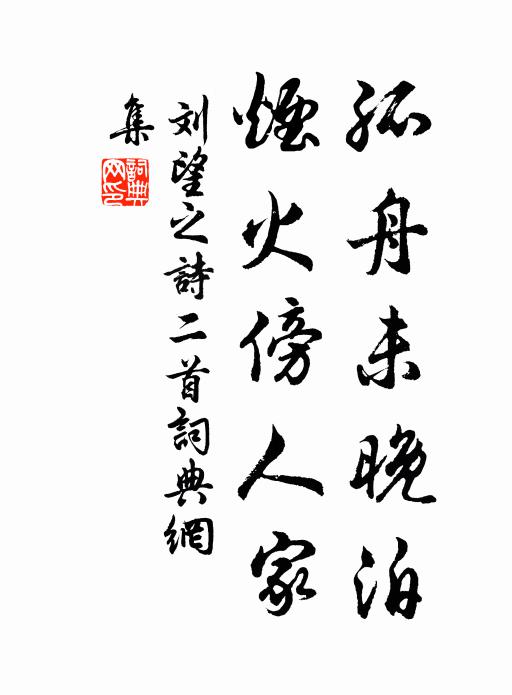 孤舟未晚泊
煙火傍人家
刘望之詩二首詞典網
集
詞典
网印